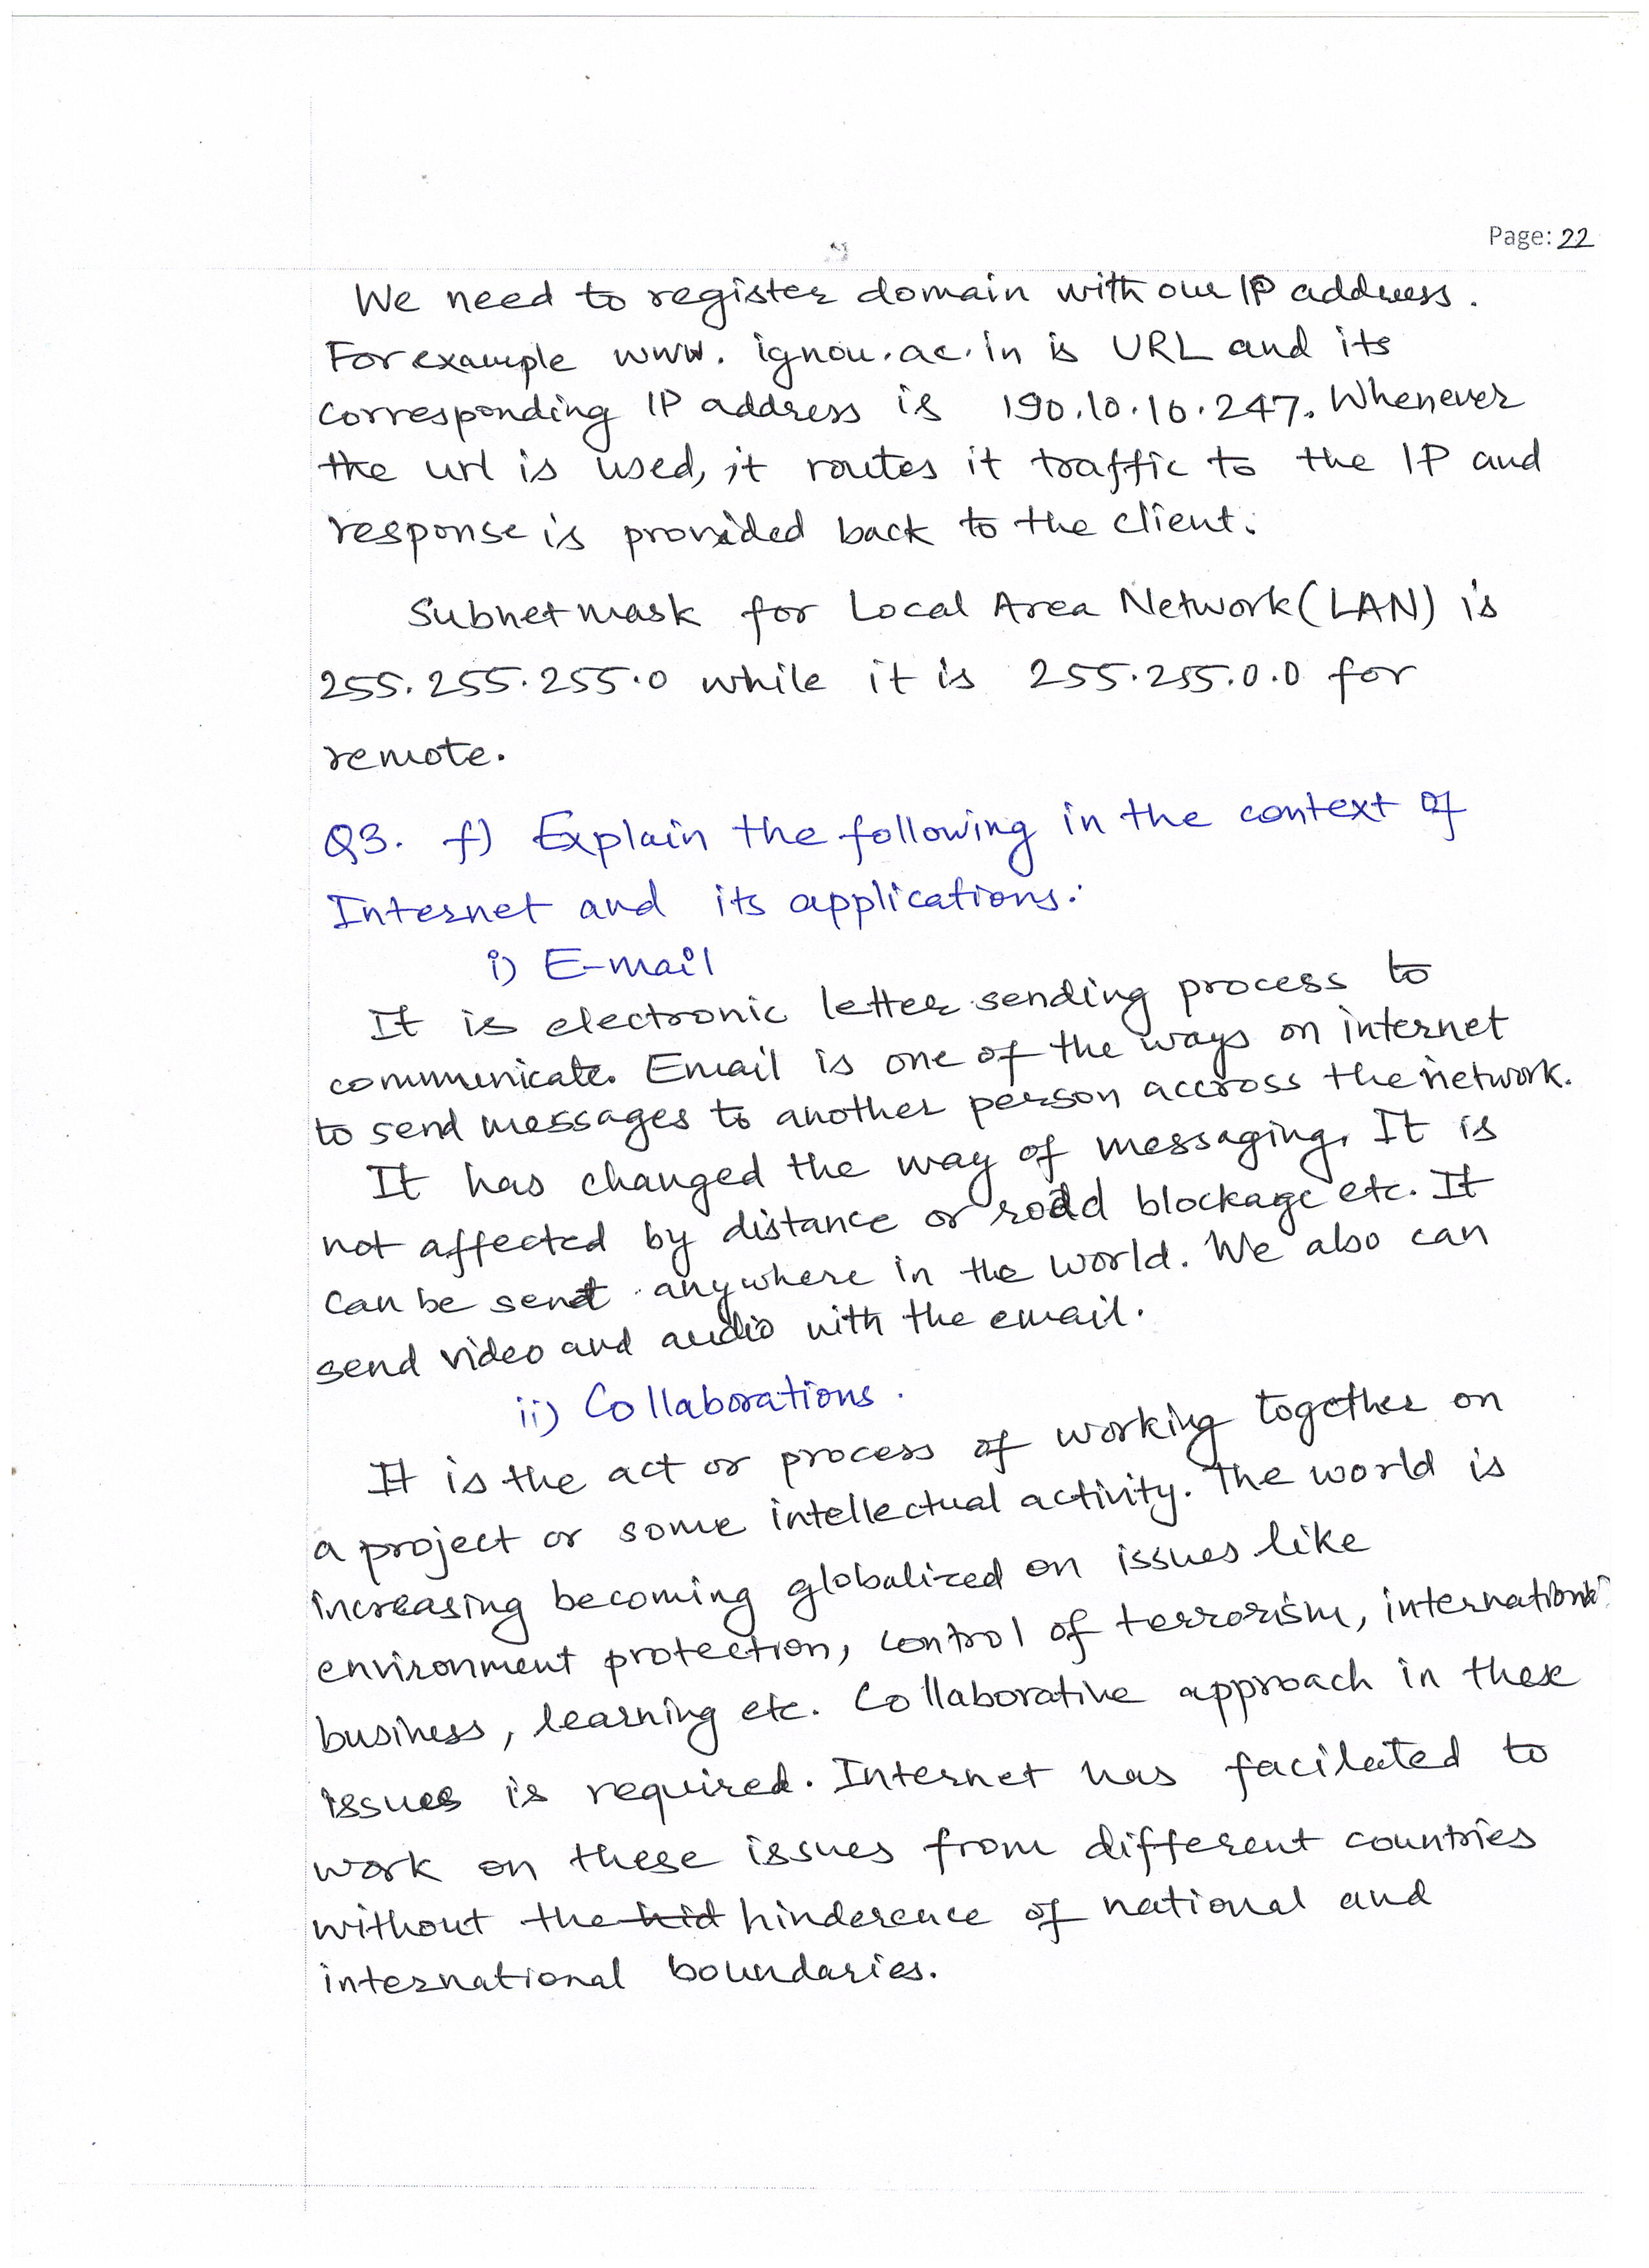 Page: 22
We need to register domain with our IP address.
For example www. ignou.ac.in is URL and its
corresponding IP address is 190.10.10.247. Whenever
the url is used, it routes it traffic to the IP and
response is provided back to the client.
Subnet mask for Local Area Network (LAN) is
255.255.255.0 while it is 255.255.0.0 for
remote.
Q3. f) Explain the following in the context of
Internet and its applications:
i) E-mail
It is electronic letter sending process to
communicate. Email is one of the ways on internet
to send messages to another person accross the network.
It has changed the way of messaging. It is
not affected by distance or road blockage etc. It
can be sent anywhere in the world. We also can
send video and audio with the email.
ii) Collaborations.
It is the act or process of working together on
a project or some intellectual activity. The world is
increasing becoming globalized on issues like
environment protection, control of terrorism, international
business, learning etc. Collaborative approach in these
issues is required. Internet has facileted to
work on these issues from different countries
without the hid hinderence of national and
international boundaries.